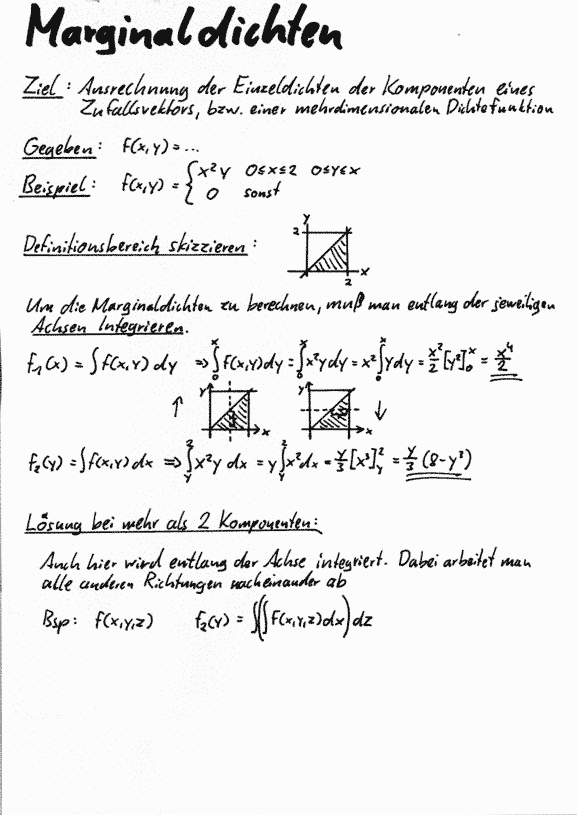 Marginaldichten
Ziel: Ausrechnung der Einzeldichten der Komponenten eines
Zufallsvektors, bzw. einer mehrdimensionalen Dichtefunktion
Gegeben: f(x,y) = ...
Beispiel: f(x,y) = { x²y 0≤x≤2 0≤y≤x
0 sonst
Definitionsbereich skizzieren:
y 2 2 x
Um die Marginaldichten zu berechnen, muß man entlang der jeweiligen
Achsen Integrieren.
f₁(x) = ∫f(x,y) dy ⇒ ∫₀ˣ f(x,y)dy = ∫₀ˣ x²y dy = x² ∫₀ˣ y dy = x²/2 [y²]₀ˣ = x⁴/2
↑ y x y x ↓
f₂(y) = ∫f(x,y) dx ⇒ ∫_y² x²y dx = y ∫_y² x² dx = y/3 [x³]_y² = y/3 (8-y³)
Lösung bei mehr als 2 Komponenten:
Auch hier wird entlang der Achse integriert. Dabei arbeitet man
alle anderen Richtungen nacheinander ab
Bsp: f(x,y,z) f₂(y) = ∫(∫f(x,y,z)dx)dz